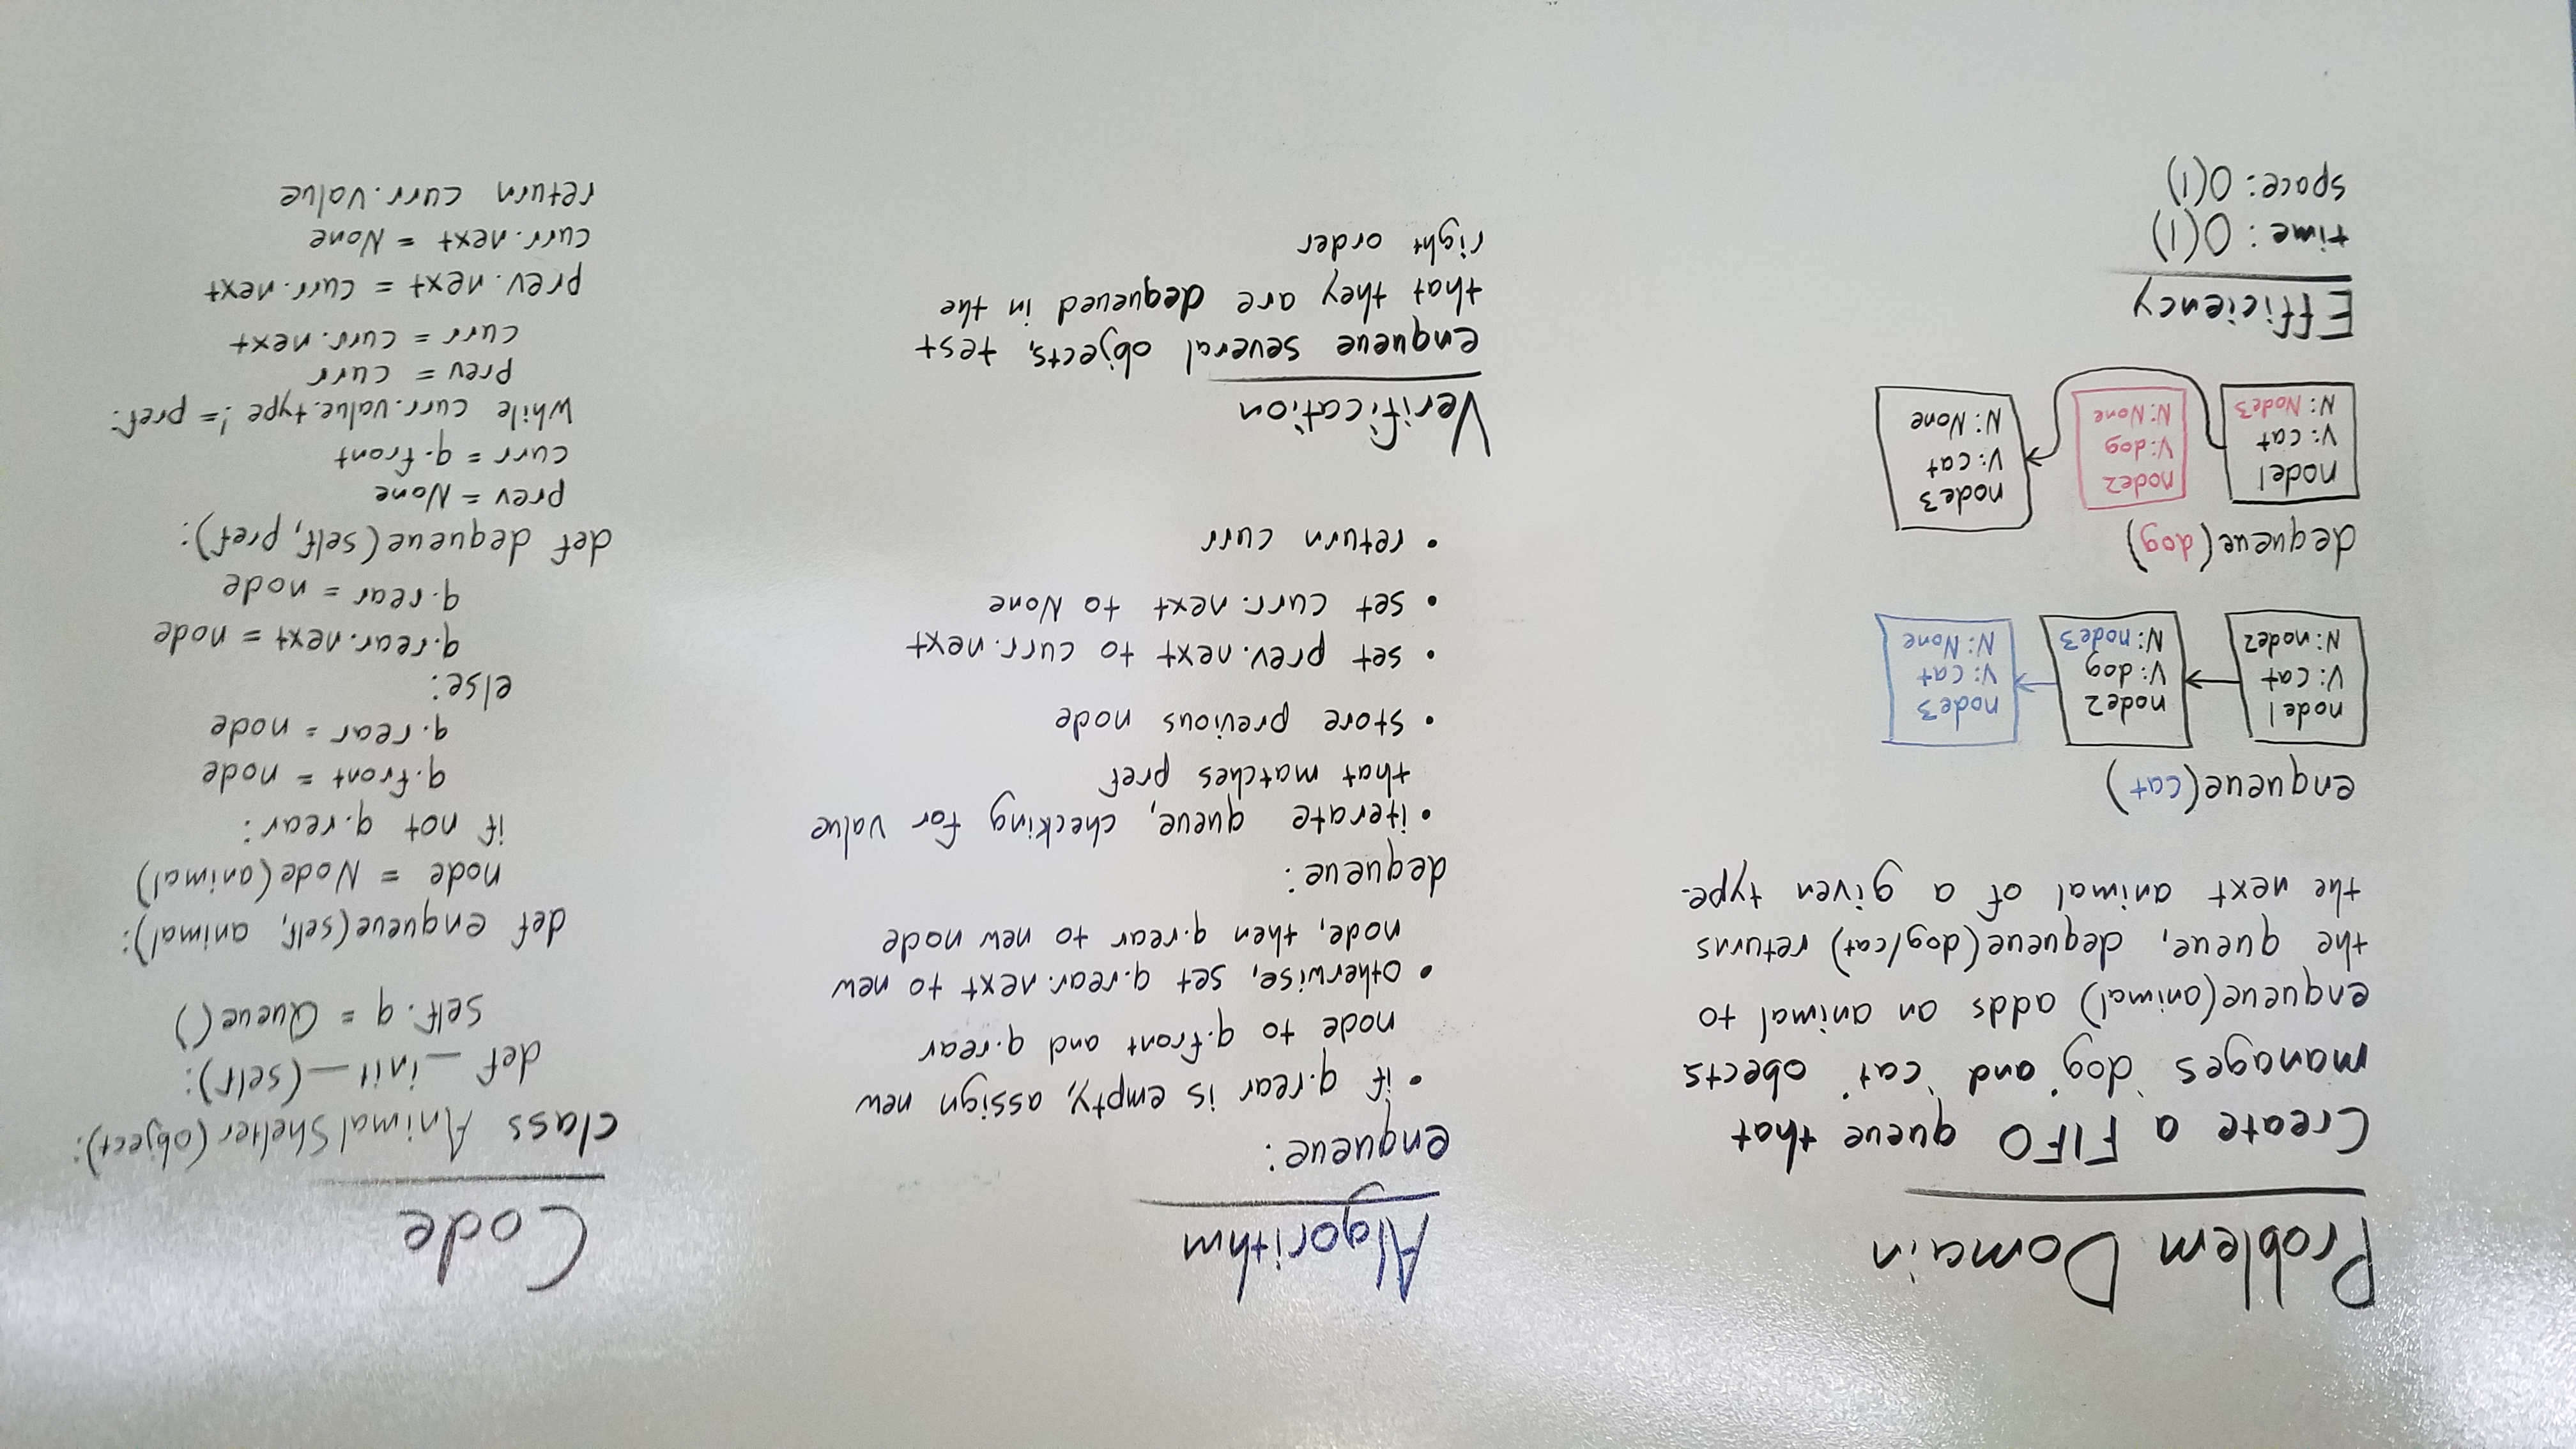 Problem Domain
Create a FIFO queue that
manages 'dog' and 'cat' obects
enqueue(animal) adds an animal to
the queue, dequeue(dog/cat) returns
the next animal of a given type.
enqueue(cat)
node1
V: cat
N: node2
node2
V: dog
N: node3
node3
V: cat
N: None
dequeue(dog)
node1
V: cat
N: Node3
node2
V: dog
N: None
node3
V: cat
N: None
Efficiency
time: O(1)
space: O(1)
Algorithm
enqueue:
• if q.rear is empty, assign new
node to q.front and q.rear
• otherwise, set q.rear.next to new
node, then q.rear to new node
dequeue:
• iterate queue, checking for value
that matches pref
• store previous node
• set prev.next to curr.next
• set curr.next to None
• return curr
Verification
enqueue several objects, test
that they are dequeued in the
right order
Code
class AnimalShelter(object):
def __init__(self):
self.q = Queue()
def enqueue(self, animal):
node = Node(animal)
if not q.rear:
q.front = node
q.rear = node
else:
q.rear.next = node
q.rear = node
def dequeue(self, pref):
prev = None
curr = q.front
while curr.value.type != pref:
prev = curr
curr = curr.next
prev.next = curr.next
curr.next = None
return curr.value